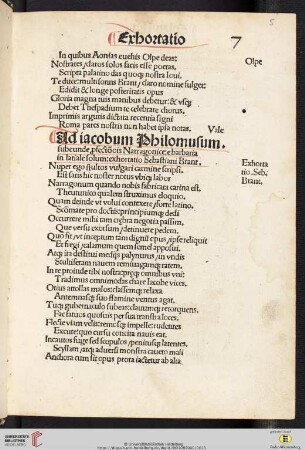 5
Exhortatio
7
In quibus Aonias euehis Olpe deas:
Olpe
Nostrates / claros solos satis esse poetas,
Scripta palam
das quoq; nostra loui.
Te duce: multisonus Brant / claro nomine fulget:
Edidit & longe posteritatis opus
Gloria magna tuis manibus debetur: & vsq;
Debet Thespiadum te celebrare chorus,
Imprimis arguis dictata recentia signis
Roma pares nostris nun habet ipsa notas.
Vale.
Ad iacobum Philomusum.
Narragonice e barbaria
in latiale solum: exhortatio Sebastiani Brant.
Exhorta
tio. Seb.
Brant.
Nuper ego stultos vulgari carmine scripsi.
Est satis hic noster notus vbiq; labor
Narragonum quando nobis fabricata carina est.
Theutonico qualem struximus eloquio,
Quam deinde vt volui contexere forte latino,
Socmate pro docto: principiumq; dedi
Occurrere mihi tam crebra negocia passim,
Que versu exorsum / detinuere pedem.
Quo fit / vt inceptum tam dignum opus / ipse reliqui
Et fregi / calamum quem semel apposui.
Atq; ita destitui medijs palynurus / in vndis
Stultiferam nauem remiuagamq; ratem.
In te proinde tibi nostræ preq; omnibus vni:
Tradimus omnimodas chare Iacobe vices.
Ortus amollas malos: classemq; relaxa
Antennasq; suo flamine ventus agat.
Tuq; gubernaculo subeas: clauumq; retorquens,
Fac fatuos quosuis per sua transtra loces.
Flecte viam velis: remosq; impelle: rudentes
Excute: quo cursu concita nauis eat.
Incautos fuge sed scopulos / penitusq; latentes.
Scyllam / atq; aduersi monstra caueto mali
Anchora cum sit opus prora iactetur ab alta
UNIVERSITÄTS-BIBLIOTHEK HEIDELBERG
© Universitätsbibliothek Heidelberg